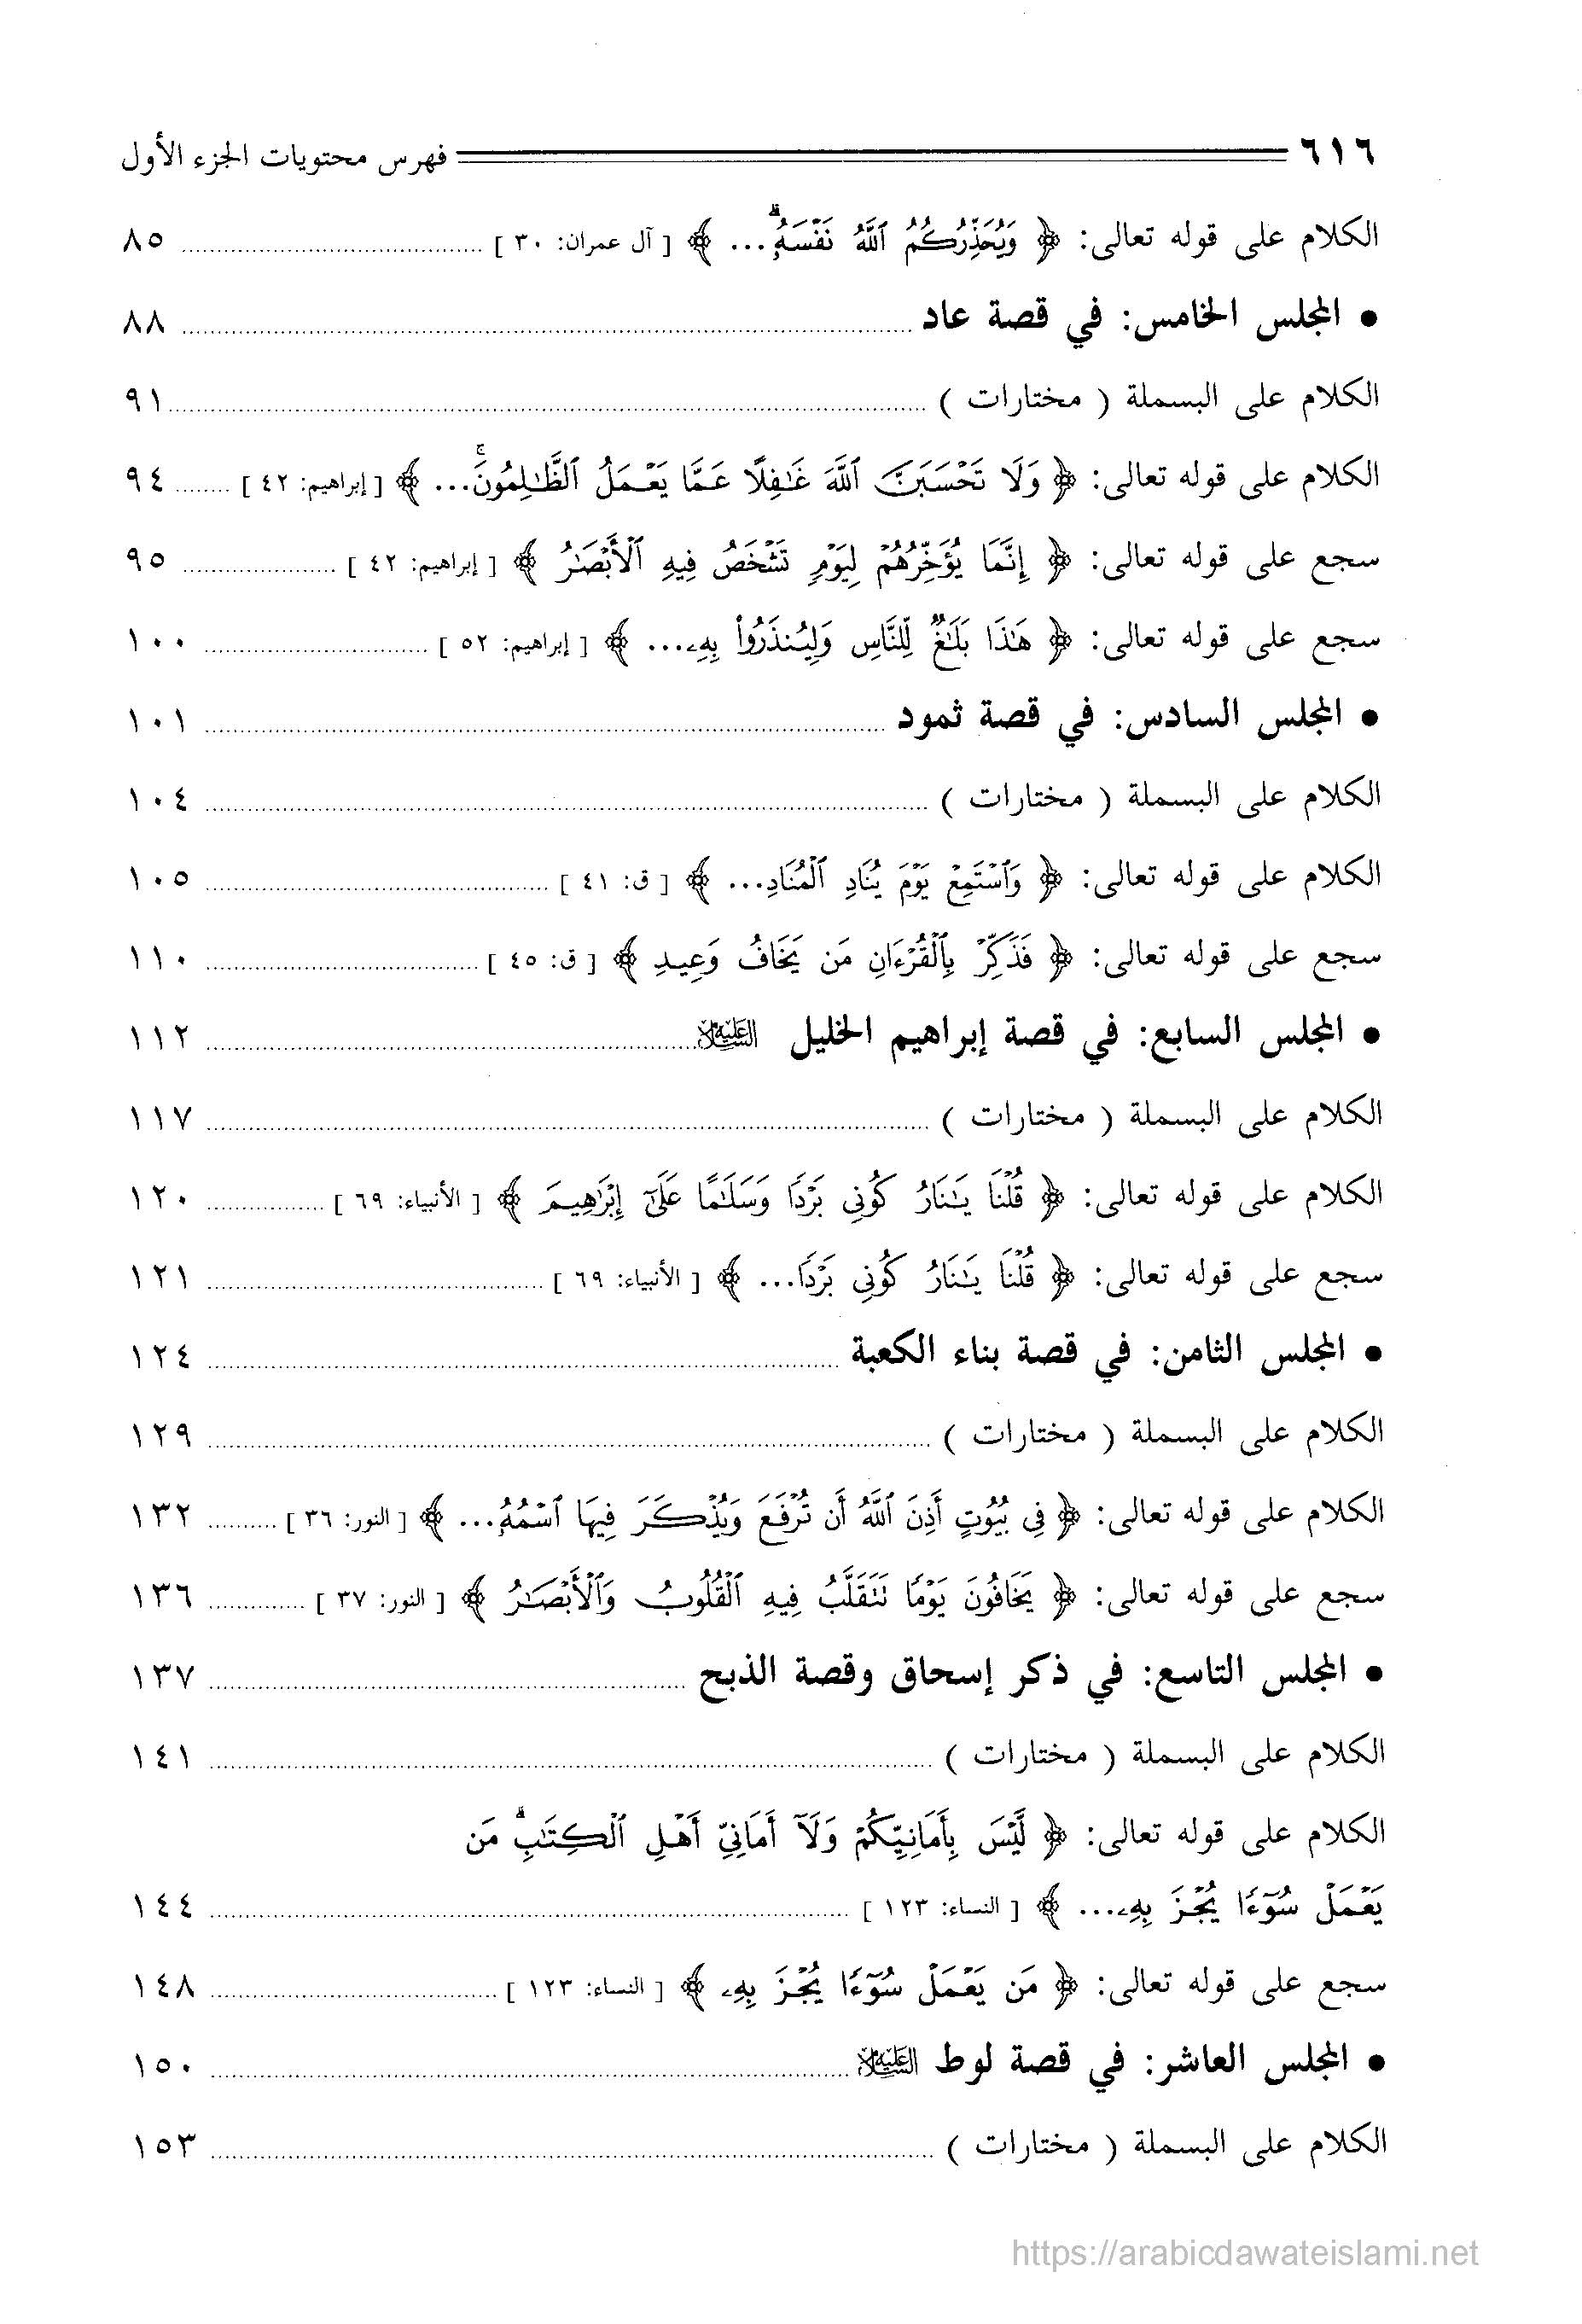 ٦١٦ فهرس محتويات الجزء الأول
الكلام على قوله تعالى: ﴿ وَيُحَذِّرُكُمُ ٱللَّهُ نَفْسَهُۥۗ... ﴾ [ آل عمران: ٣٠ ] ........ ٨٥
● المجلس الخامس: في قصة عاد ........ ٨٨
الكلام على البسملة ( مختارات ) ........ ٩١
الكلام على قوله تعالى: ﴿ وَلَا تَحْسَبَنَّ ٱللَّهَ غَٰفِلًا عَمَّا يَعْمَلُ ٱلظَّٰلِمُونَۚ... ﴾ [إبراهيم: ٤٢ ] ........ ٩٤
سجع على قوله تعالى: ﴿ إِنَّمَا يُؤَخِّرُهُمْ لِيَوْمٍ تَشْخَصُ فِيهِ ٱلْأَبْصَٰرُ ﴾ [ إبراهيم: ٤٢ ] ........ ٩٥
سجع على قوله تعالى: ﴿ هَٰذَا بَلَٰغٌ لِّلنَّاسِ وَلِيُنذَرُوا۟ بِهِۦ... ﴾ [ إبراهيم: ٥٢ ] ........ ١٠٠
● المجلس السادس: في قصة ثمود ........ ١٠١
الكلام على البسملة ( مختارات ) ........ ١٠٤
الكلام على قوله تعالى: ﴿ وَٱسْتَمِعْ يَوْمَ يُنَادِ ٱلْمُنَادِ... ﴾ [ ق: ٤١ ] ........ ١٠٥
سجع على قوله تعالى: ﴿ فَذَكِّرْ بِٱلْقُرْءَانِ مَن يَخَافُ وَعِيدِ ﴾ [ ق: ٤٥ ] ........ ١١٠
● المجلس السابع: في قصة إبراهيم الخليل عليه السلام ........ ١١٢
الكلام على البسملة ( مختارات ) ........ ١١٧
الكلام على قوله تعالى: ﴿ قُلْنَا يَٰنَارُ كُونِى بَرْدًا وَسَلَٰمًا عَلَىٰٓ إِبْرَٰهِيمَ ﴾ [ الأنبياء: ٦٩ ] ........ ١٢٠
سجع على قوله تعالى: ﴿ قُلْنَا يَٰنَارُ كُونِى بَرْدًا... ﴾ [ الأنبياء: ٦٩ ] ........ ١٢١
● المجلس الثامن: في قصة بناء الكعبة ........ ١٢٤
الكلام على البسملة ( مختارات ) ........ ١٢٩
الكلام على قوله تعالى: ﴿ فِى بُيُوتٍ أَذِنَ ٱللَّهُ أَن تُرْفَعَ وَيُذْكَرَ فِيهَا ٱسْمُهُۥ... ﴾ [ النور: ٣٦ ] ........ ١٣٢
سجع على قوله تعالى: ﴿ يَخَافُونَ يَوْمًا تَتَقَلَّبُ فِيهِ ٱلْقُلُوبُ وَٱلْأَبْصَٰرُ ﴾ [ النور: ٣٧ ] ........ ١٣٦
● المجلس التاسع: في ذكر إسحاق وقصة الذبح ........ ١٣٧
الكلام على البسملة ( مختارات ) ........ ١٤١
الكلام على قوله تعالى: ﴿ لَّيْسَ بِأَمَانِيِّكُمْ وَلَآ أَمَانِىِّ أَهْلِ ٱلْكِتَٰبِۗ مَن
يَعْمَلْ سُوٓءًا يُجْزَ بِهِۦ... ﴾ [ النساء: ١٢٣ ] ........ ١٤٤
سجع على قوله تعالى: ﴿ مَن يَعْمَلْ سُوٓءًا يُجْزَ بِهِۦ ﴾ [ النساء: ١٢٣ ] ........ ١٤٨
● المجلس العاشر: في قصة لوط عليه السلام ........ ١٥٠
الكلام على البسملة ( مختارات ) ........ ١٥٣
https://arabicdawateislami.net